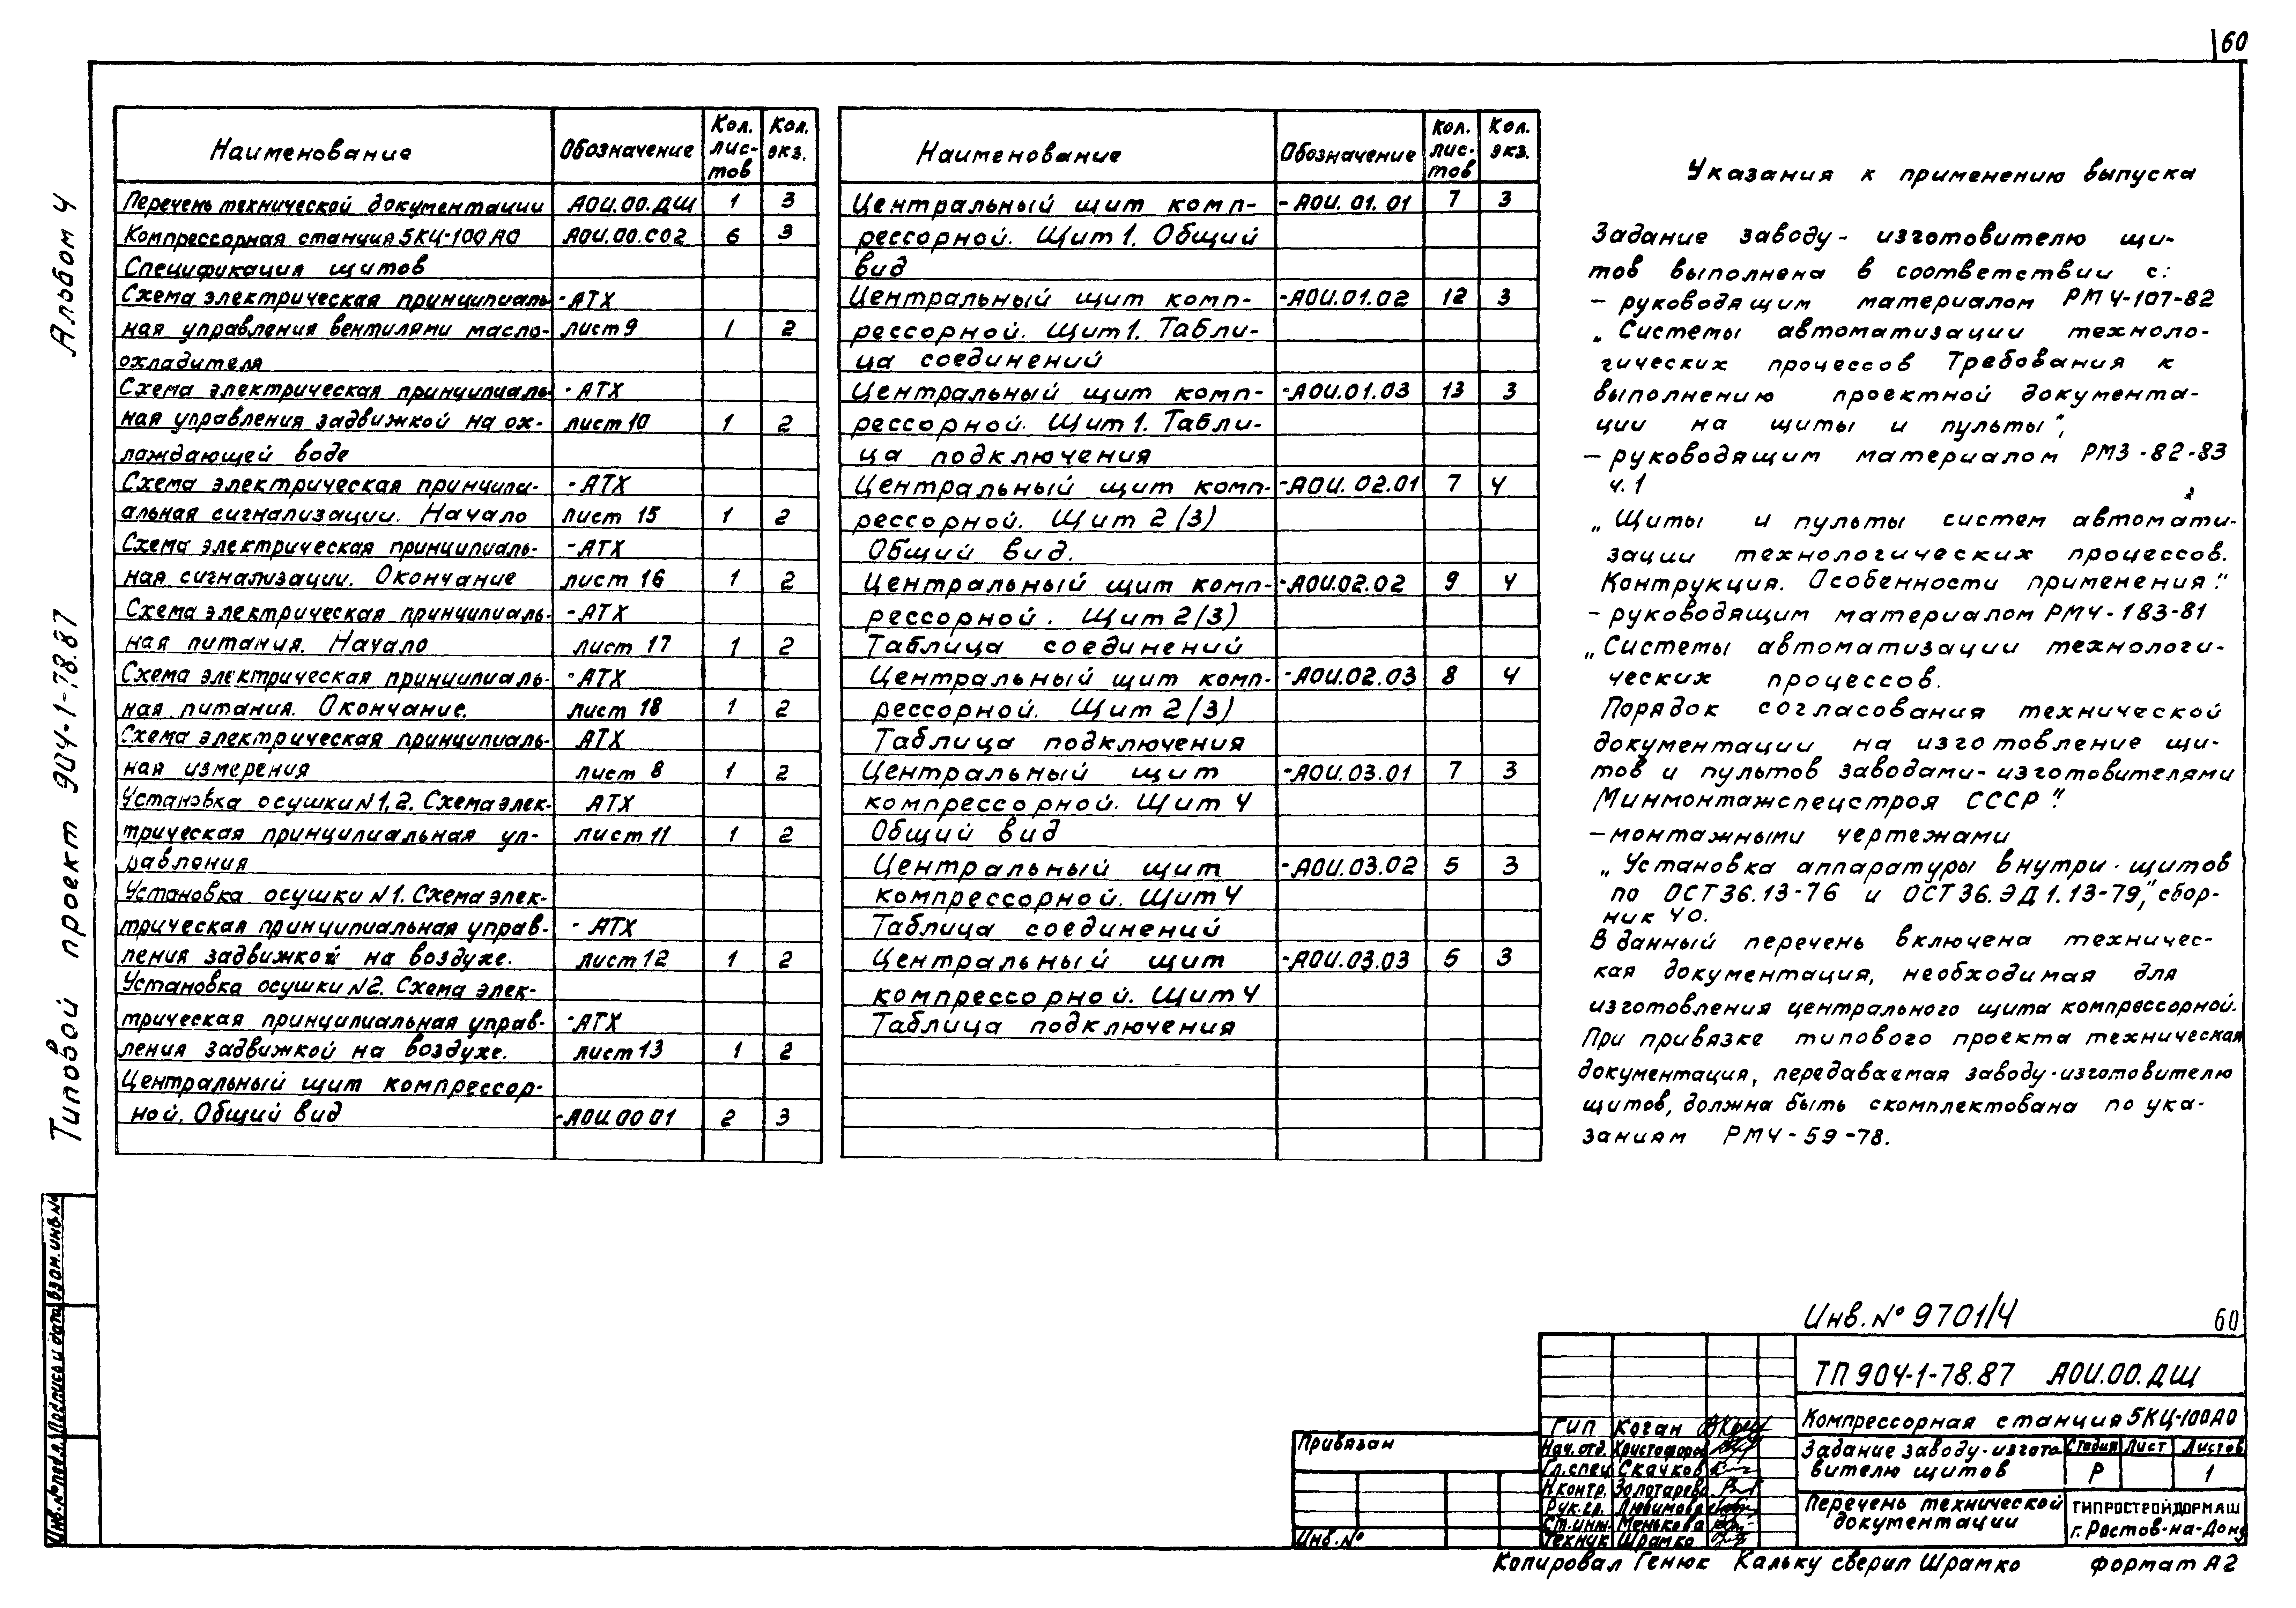 60
Альбом 4
Типовой проект 904-1-78.87
Наименование
Обозначение
Кол. лис- тов
Кол. экз.
Перечень технической документации АОИ.00.ДЩ 1 3
Компрессорная станция 5КЦ-100АО АОИ.00.СО2 6 3
Спецификация щитов
Схема электрическая принципиаль- -АТХ
ная управления вентилями масло- лист 9 1 2
охладителя
Схема электрическая принципиаль- -АТХ
ная управления задвижкой на ох- лист 10 1 2
лаждающей воде
Схема электрическая принципи- -АТХ
альная сигнализации. Начало лист 15 1 2
Схема электрическая принципиаль- -АТХ
ная сигнализации. Окончание лист 16 1 2
Схема электрическая принципиаль- -АТХ
ная питания. Начало лист 17 1 2
Схема электрическая принципиаль- -АТХ
ная питания. Окончание. лист 18 1 2
Схема электрическая принципиаль- АТХ
ная измерения лист 8 1 2
Установка осушки N1,2. Схема элек- АТХ
трическая принципиальная уп- лист 11 1 2
равления
Установка осушки N1. Схема элек-
трическая принципиальная управ- - АТХ
ления задвижкой на воздухе. лист 12 1 2
Установка осушки N2. Схема элек-
трическая принципиальная управ- -АТХ
ления задвижкой на воздухе. лист 13 1 2
Центральный щит компрессор-
ной. Общий вид -АОИ.00 01 2 3
Наименование
Обозначение
Кол. лис- тов
Кол. экз.
Центральный щит комп- -АОИ.01.01 7 3
рессорной. Щит 1. Общий
вид
Центральный щит комп- -АОИ.01.02 12 3
рессорной. Щит 1. Табли-
ца соединений
Центральный щит комп- -АОИ.01.03 13 3
рессорной. Щит 1. Табли-
ца подключения
Центральный щит комп- -АОИ.02.01 7 4
рессорной. Щит 2 (3)
Общий вид.
Центральный щит комп- -АОИ.02.02 9 4
рессорной. Щит 2 (3)
Таблица соединений
Центральный щит комп- -АОИ.02.03 8 4
рессорной. Щит 2 (3)
Таблица подключения
Центральный щит -АОИ.03.01 7 3
компрессорной. Щит 4
Общий вид
Центральный щит -АОИ.03.02 5 3
компрессорной. Щит 4
Таблица соединений
Центральный щит -АОИ.03.03 5 3
компрессорной. Щит 4
Таблица подключения
Указания к применению выпуска
Задание заводу- изготовителю щи-
тов выполнена в соответствии с:
- руководящим материалом РМ4-107-82
„Системы автоматизации техноло-
гических процессов Требования к
выполнению проектной документа-
ции на щиты и пульты",
- руководящим материалом РМ3-82-83
ч.1
„Щиты и пульты систем автомати-
зации технологических процессов.
Контрукция. Особенности применения."
- руководящим материалом РМ4-183-81
„Системы автоматизации технологи-
ческих процессов.
Порядок согласования технической
документации на изготовление щи-
тов и пультов заводами-изготовителями
Минмонтажспецстроя СССР"
- монтажными чертежами
„Установка аппаратуры внутри щитов
по ОСТ36.13-76 и ОСТ36.ЭД1.13-79", сбор-
ник 40.
В данный перечень включена техничес-
кая документация, необходимая для
изготовления центрального щита компрессорной.
При привязке типового проекта техническая
документация, передаваемая заводу-изготовителю
щитов, должна быть скомплектована по ука-
заниям РМ4-59-78.
Взам. инв. №
Подпись и дата
Инв. № подл.
Инв. № 9701/4
60
ТП 904-1-78.87 АОИ.00.ДЩ
Компрессорная станция 5КЦ-100АО
Задание заводу-изгото-
вителю щитов
Стадия Лист Листов
Р 1
Перечень технической
документации
ГИПРОСТРОЙДОРМАШ
г. Ростов-на-Дону
Привязан
Инв. №
ГИП Коган
Нач. отд. Христофоров
Гл. спец Скачков
Н.контр. Золотарева
Рук. гр. Любимова
Ст. инж. Менькова
Техник Шрамко
Копировал Генюк Кальку сверил Шрамко формат А2